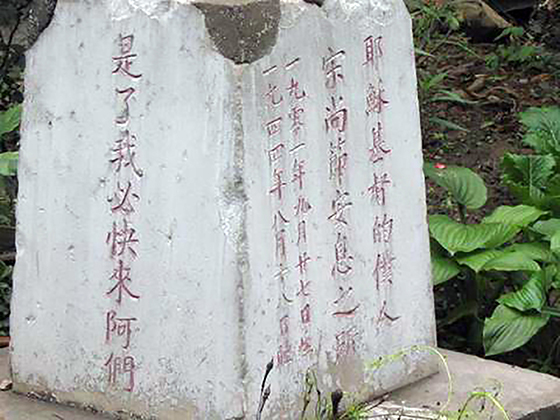 耶穌基督的僕人
宋尚節安息之所
一九零一年九月廿七日生
一九四四年八月十八日
是了我必快來阿們